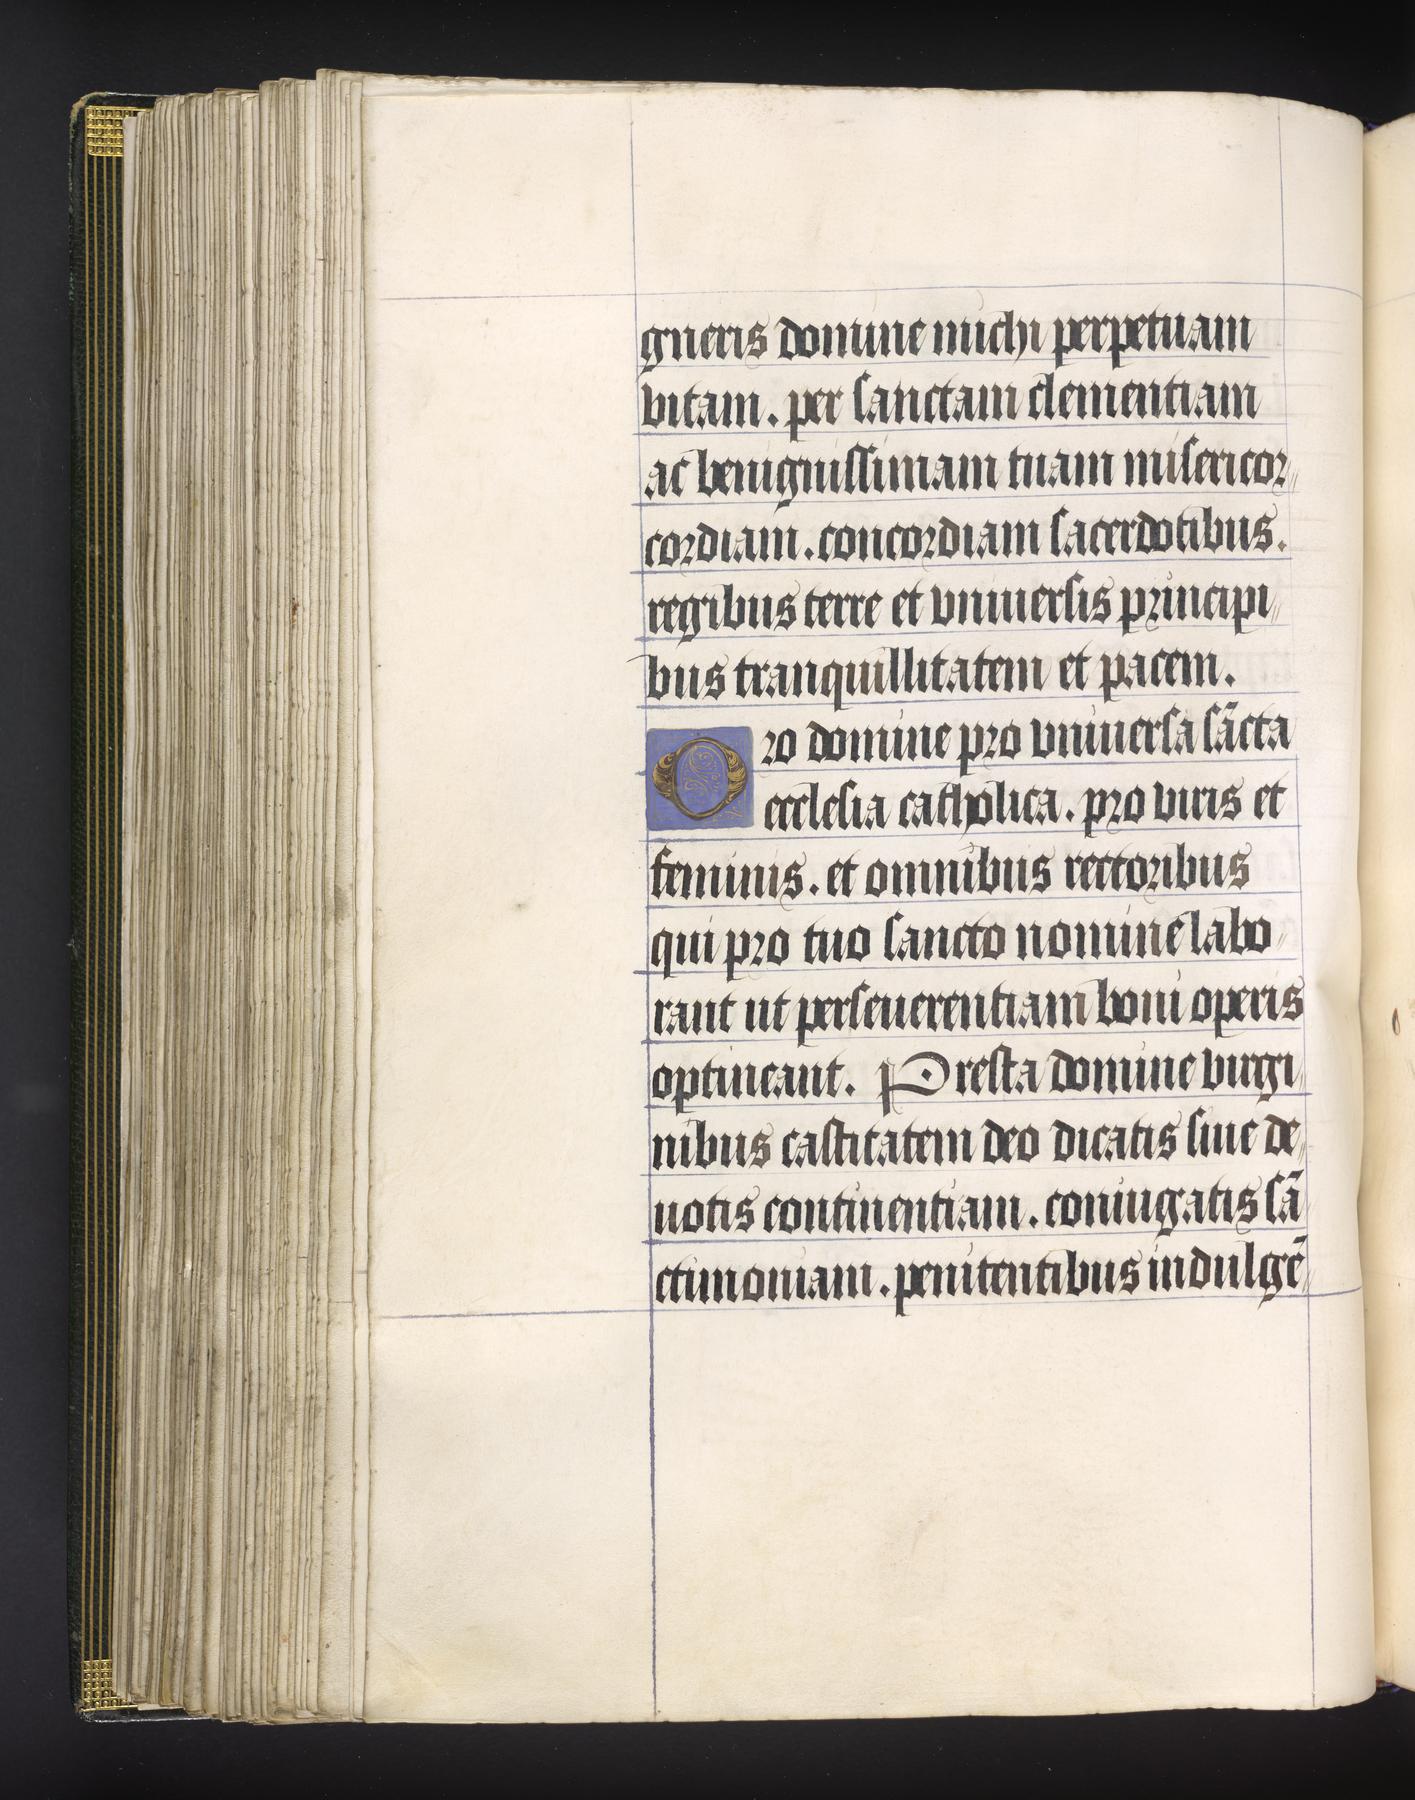 gneris domine michi perpetuam
vitam. per sanctam clementiam
ac benignissimam tuam misericor
cordiam. concordiam sacerdotibus.
regibus terre et vniuersis principi
bus tranquillitatem et pacem.
Oro domine pro vniuersa sc̄ta
ecclesia catholica. pro viris et
feminis. et omnibus rectoribus
qui pro tuo sancto nomine labo
rant ut perseuerentiam boni operis
optineant. Presta domine virgi
nibus castitatem deo dicatis siue de
uotis continentiam. coniugatis sā
ctimoniam. penitentibus indulgē